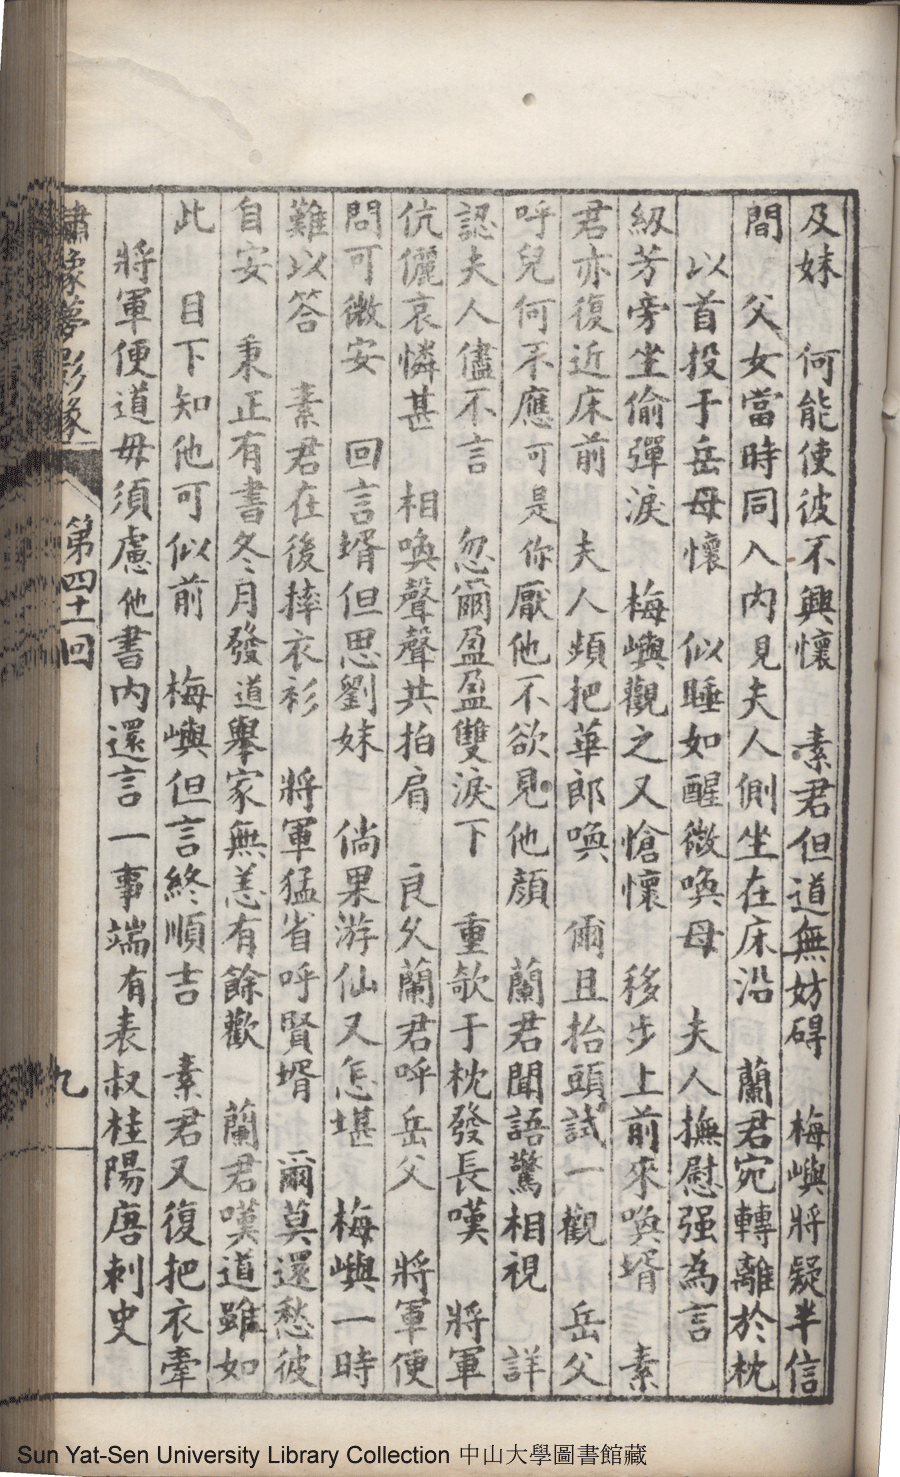 及妹　何能使彼不興懷　素君但道無妨碍　梅嶼將疑半信
間　父女當時同入內見夫人側坐在床沿　蘭君宛轉離於枕
以首投于岳母懷　似睡如醒微喚母　夫人撫慰强為言
級芳旁坐偷彈淚　梅嶼觀之又愴懷　移步上前來喚壻　素
君亦復近床前　夫人頻把華郎喚　爾且抬頭試一觀　岳父
呼兒何不應可是你厭他不欲見他顏　蘭君聞語驚相視　詳
認夫人儘不言　忽爾盈盈雙淚下　重欹于枕發長嘆　將軍
伉儷哀憐甚　相喚聲聲共拍肩　良久蘭君呼岳父　將軍便
問可微安　回言壻但思劉妹　倘果游仙又怎堪　梅嶼一時
難以答　素君在後摔衣衫　將軍猛省呼賢壻　爾莫還愁彼
自安　秉正有書冬月發道舉家無恙有餘歡　蘭君嘆道雖如
此　目下知他可似前　梅嶼但言終順吉　素君又復把衣牽
將軍便道毋須慮他書內還言一事端有表叔桂陽唐刺史
夢影緣　第四十一回　九
Sun Yat-Sen University Library Collection 中山大學圖書館藏